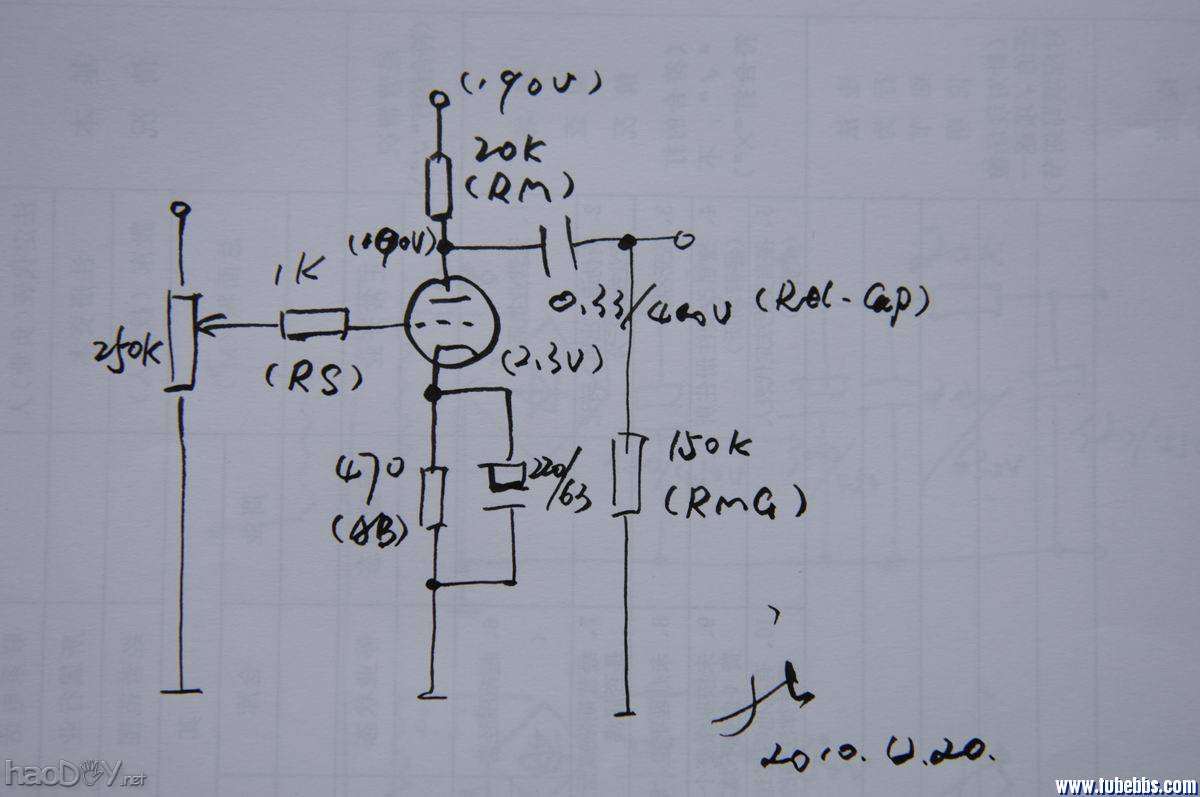 (190V)
20K
(RM)
1K
250K
(RS)
0.33/400V (Rel-Cap)
(2.3V)
470
220/63
150K
(RMG)
2010.
20.
haoDIY.net
www.tubebbs.com